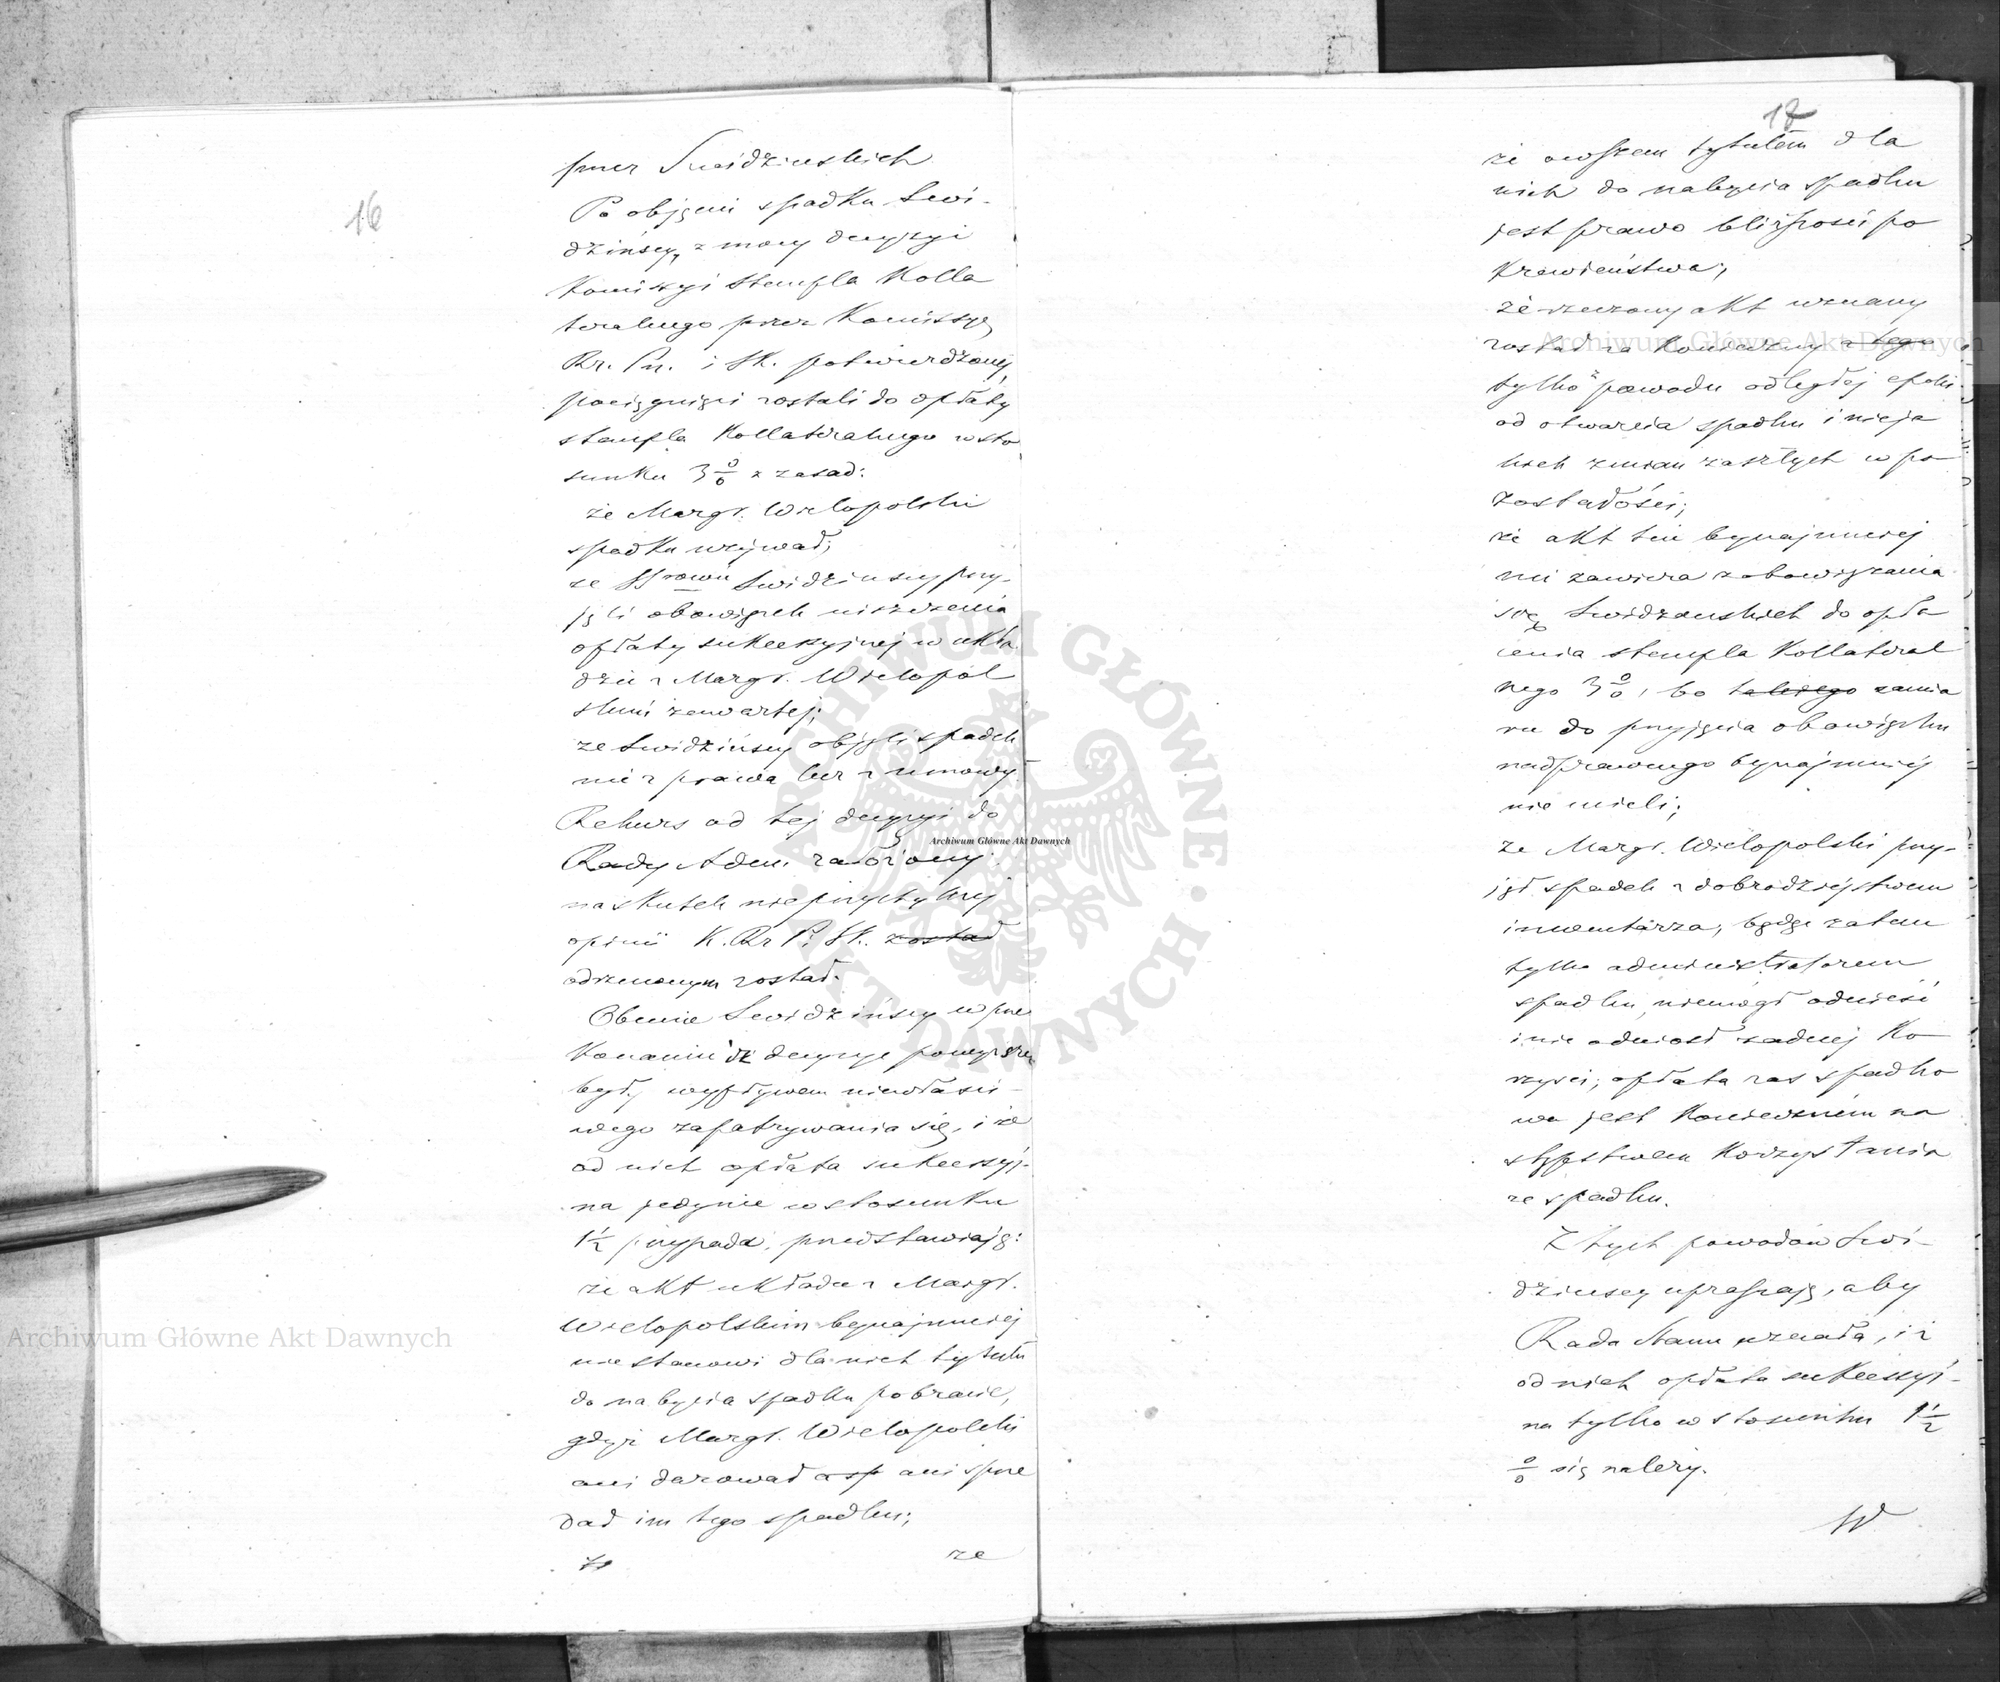 16
przez Swidzińskich
Po objęciu spadku Swi-
dzińscy, z mocy decyzyi
Komisyi Stempla Kolla
teralnego przez Kommissyę
Rz. Prz. i Sk. potwierdzonéj,
pociągnięci zostali do opłaty
stempla Kollateralnego w sto
sunku 3 0/0 z zasad:
że Margr. Wielopolski
spadku używał;
że SSrowie Swidzińscy przy-
jęli obowiązek uiszczenia
opłaty sukcessyjnej w ukła
dzie z Margr. Wielopol
skim zawartej;
że Swidzińscy objęli spadek
nie z prawa lecz z umowy.
Rekurs od tej decyzyi do
Rady Adm. założony
na skutek nieprzychylnej
opinii K. Rz P. i Sk. został
odrzuconym został.
Obecnie Swidzińscy w prze
konaniu iż decyzye powyższe
były wypływem niewłaści-
wego zapatrywania się, i że
od nich opłata sukcessyj-
na jedynie w stosunku
1 1/2 przypada, przedstawiają:
że akt układu z Margr.
Wielopolskim bynajmniej
nie stanowi dla nich tytułu
do nabycia spadku po bracie,
gdyż Margr. Wielopolski
ani darował a sp ani sprze
dał im tego spadku;
że
17
że owszem tytułem dla
nich do nabycia spadku
jest prawo bliższości po
krewieństwa;
że rzeczony akt uznany
został za konieczny z tego
tylko z powodu odległej epoki
od otwarcia spadku i nieja
kich zmian zaszłych w po
zostałości;
że akt ten bynajmniej
nie zawiera zobowiązania
się Swidzińskich do opła
cenia stempla Kollateral
nego 3 0/0, bo takiego zamia
ru do przyjęcia obowiązku
nadprawnego bynajmniej
nie mieli;
że Margr. Wielopolski przy-
jął spadek z dobrodziejstwem
inwentarza, będąc zatem
tylko administratorem
spadku, niemógł odnieść
i nie odniosł żadnej ko
rzyści; opłata zaś spadko
wa jest konieczném na
stępstwem korzystania
ze spadku.
Z tych powodów Swi-
dzińscy upraszają, aby
Rada Stanu uznała, iż
od nich opłata sukcessyj-
na tylko w stosunku 1 1/2
0/0 się należy.
W
Archiwum Główne Akt Dawnych
Archiwum Główne Akt Dawnych
Archiwum Główne Akt Dawnych
ARCHIWUM GŁÓWNE · AKT DAWNYCH ·